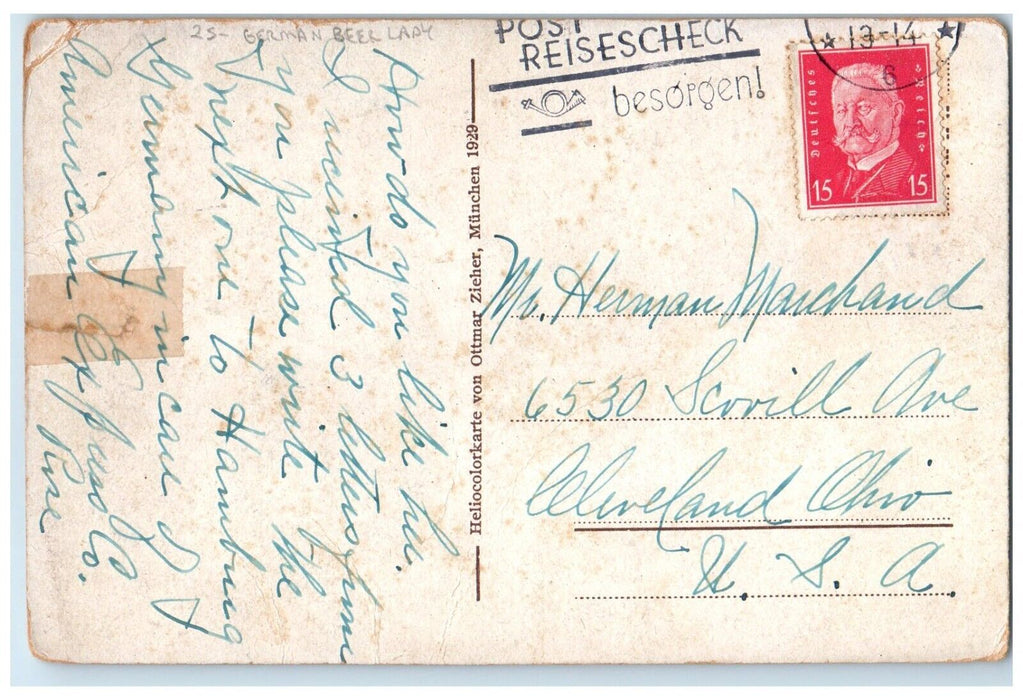 25- GERMAN BEER LADY
How do you like her.
I received 3 letters from
you please write the
next one to Hamburg
Germany in care of
American Express Co.
Rose
Heliocolorkarte von Ottmar Zieher, München 1929
POST
REISESCHECK
besorgen!
* 13-14 *
6
Deutsches Reich
15 15
Mr. Herman Marchand
6530 Scovill Ave
Cleveland Ohio
U. S. A.